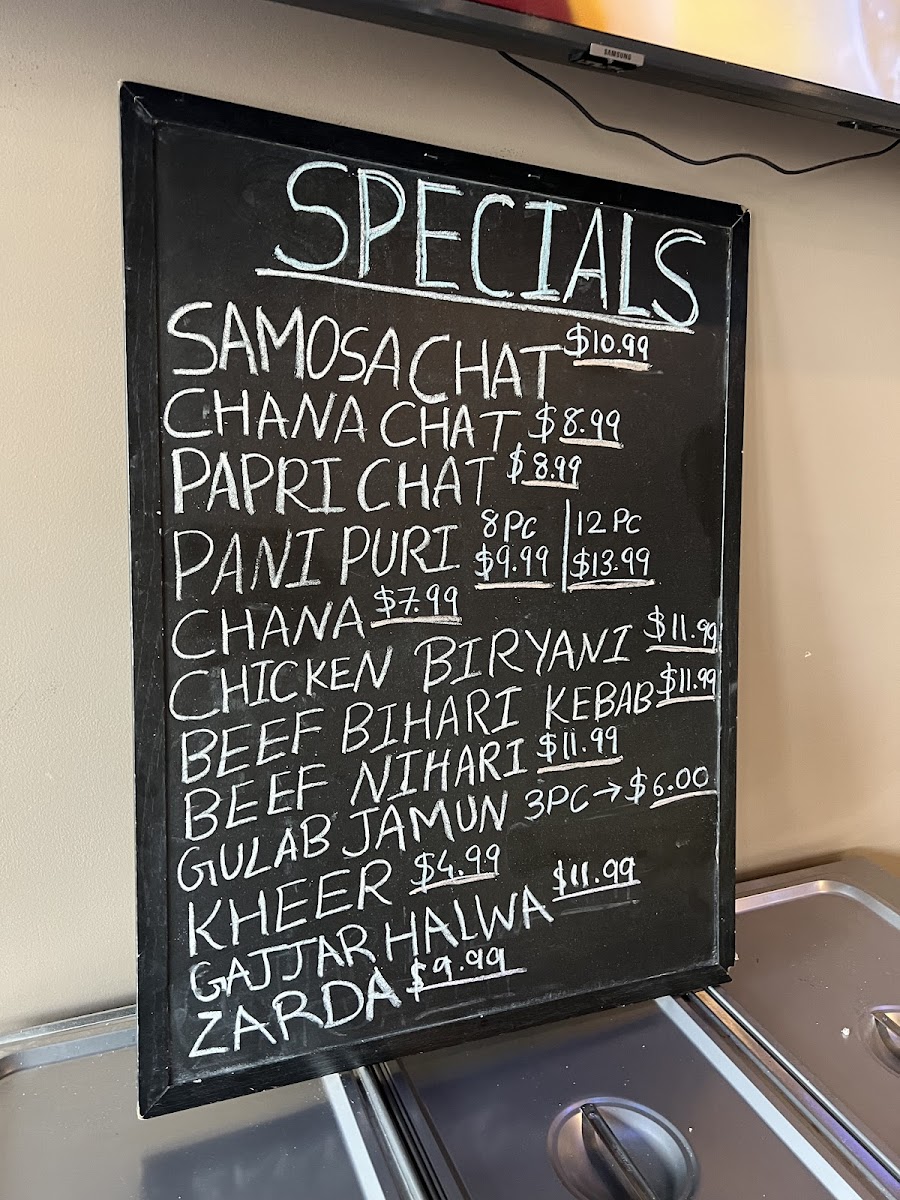 SAMSUNG
SPECIALS
SAMOSA CHAT $10.99
CHANA CHAT $8.99
PAPRI CHAT $8.99
8PC | 12 PC
PANI PURI $9.99 | $13.99
CHANA $7.99
CHICKEN BIRYANI $11.99
BEEF BIHARI KEBAB $11.99
BEEF NIHARI $11.99
GULAB JAMUN 3PC → $6.00
KHEER $4.99
GAJJAR HALWA $11.99
ZARDA $9.99